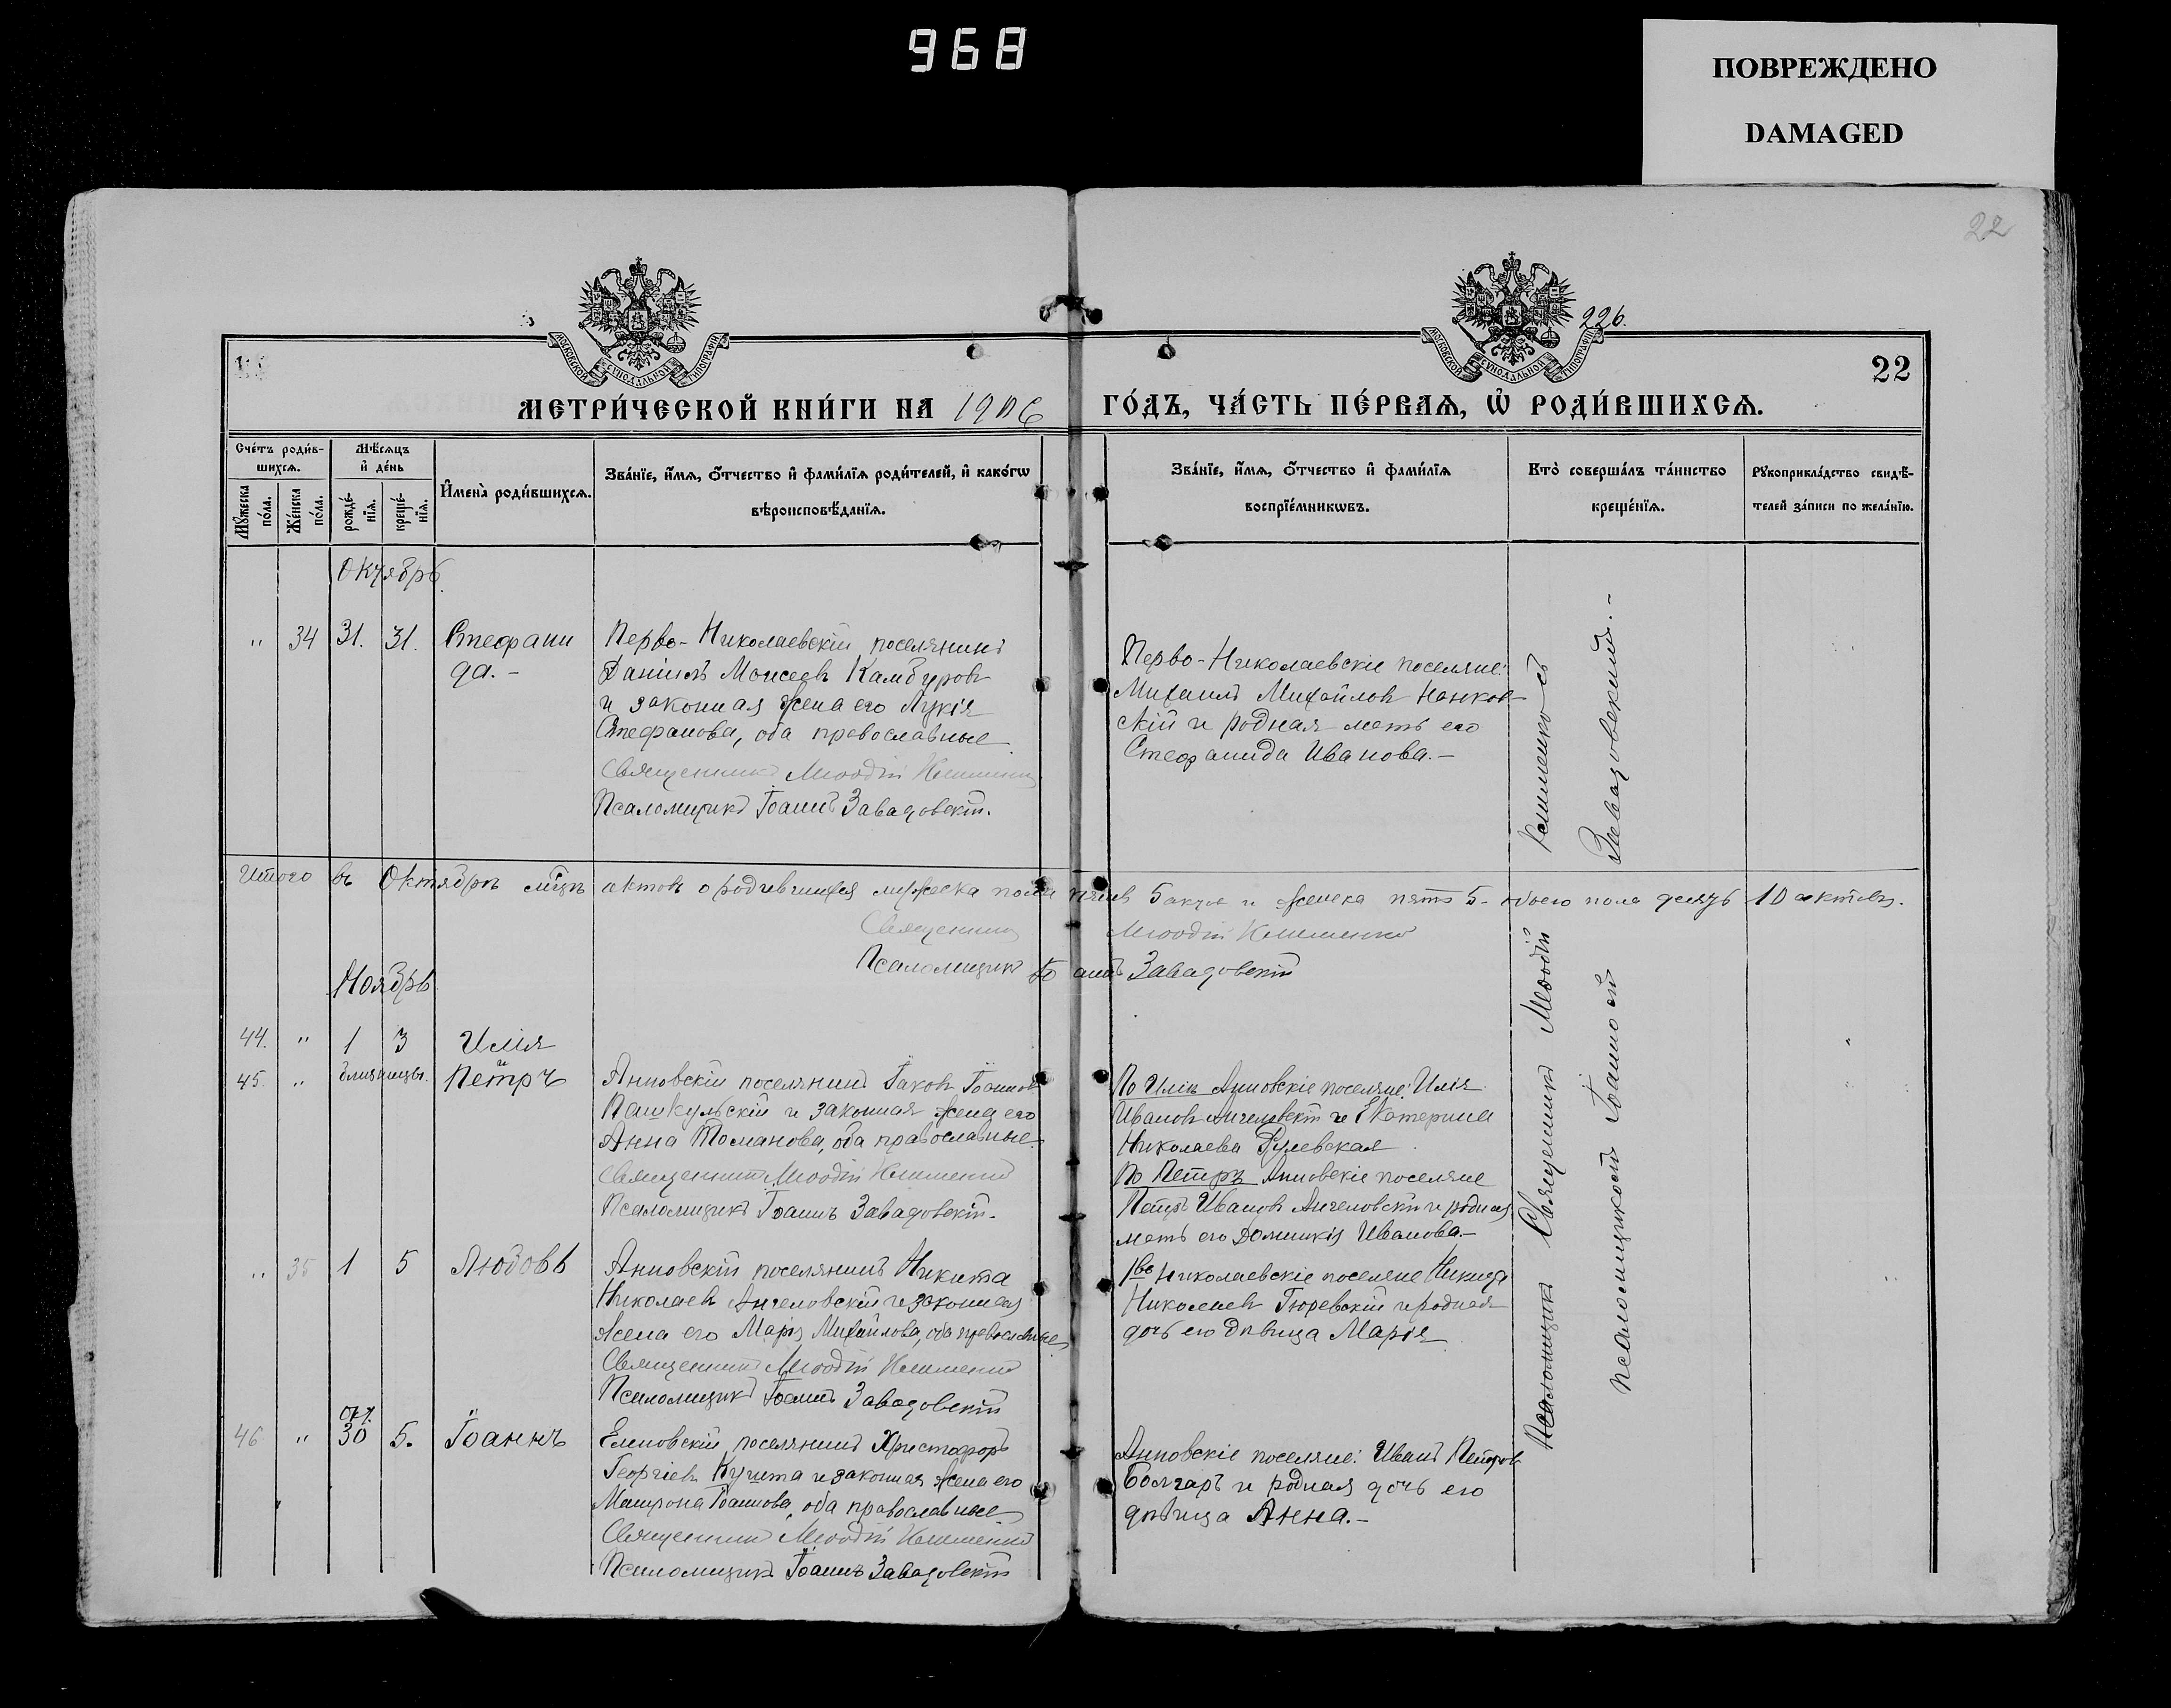 968
ПОВРЕЖДЕНО
DAMAGED
22
226.
МОСКОВСКОЙ СѴНОДАЛЬНОЙ ТИПОГРАФІИ
МОСКОВСКОЙ СѴНОДАЛЬНОЙ ТИПОГРАФІИ
22
МЕТРИ́ЧЕСКОЙ КНИ́ГИ НА 1906 ГО́ДЪ, ЧА́СТЬ ПЕ́РВАѦ, Ѡ҆ РОДИ́ВШИХСѦ.
Сче́тъ роди́в-
шихсѧ.
Мѣ́сѧцъ
и҆ де́нь
Мꙋ́жеска по́ла.
Же́нска по́ла.
рожде́-
нїѧ.
креще́-
нїѧ.
И҆мена̀ роди́вшихсѧ.
Зва́нїе, и҆́мѧ, ѻ҆́тчество и҆ фами́лїѧ роди́телей, и҆ како́гѡ
вѣроисповѣ́данїѧ.
Зва́нїе, и҆́мѧ, ѻ҆́тчество и҆ фами́лїѧ
воспрїе́мникѡвъ.
Кто̀ соверша́лъ та́инство
креще́нїѧ.
Рꙋкоприкла́дство свидѣ́-
телей за́писи по жела́нїю.
Октябрь
" 34 31. 31. Стефани
да.-
Перво-Николаевскій поселянинъ
Даніилъ Моисеевъ Камбуровъ
и законная жена его Лукія
Стефанова, оба православные
Священникъ Меѳодій Клименко
Псаломщикъ Іоаннъ Завадовскій.
Перво-Николаевскіе поселяне:
Михаилъ Михайловъ Нанков-
скій и родная мать его
Стефанида Иванова.-
Итого въ Октябрѣ мѣсцѣ актовъ о родившихся мужеска пола пять 5 актов и женска пять 5- обоего пола десять 10 актовъ.
Священникъ Меѳодій Клименко
Псаломщикъ Іоаннъ Завадовскій
Ноябрь
44. " 1 3 Илія
и
45. " близнецы. Петръ
Анновскій поселянинъ Іаковъ Іоанновъ
Пашкульскій и законная жена его
Анна Романова, оба православные.
Священникъ Меѳодій Клименко
Псаломщикъ Іоаннъ Завадовскій.
По Иліѣ Анновскіе поселяне: Илія
Ивановъ Ангеловскій и Екатерина
Николаева
По Петрѣ Анновскіе поселяне
Петръ Ивановъ Ангеловскій и родная
мать его Домникія Иванова.-
" 35 1 5 Любовь
Анновскій поселянинъ Никита
Николаевъ Ангеловскій и законная
жена его Марія Михайлова, оба православные
Священникъ Меѳодій Клименко
Псаломщикъ Іоаннъ Завадовскій
1во Николаевскіе поселяне Никита
Николаевъ Гюревскій и родная
дочь его дѣвица Марія
окт.
46 " 30 5. Іоаннъ
Еленовскій поселянинъ Христофоръ
Георгіевъ и законная жена его
Матрона Іоаннова, оба православные
Священникъ Меѳодій Клименко
Псаломщикъ Іоаннъ Завадовскій
Анновскіе поселяне: Иванъ Петровъ
Болгаръ и родная дочь его
дѣвица Анна.-
Священникъ Меѳодій Клименко съ
псаломщикомъ Іоанномъ Завадовскимъ.-